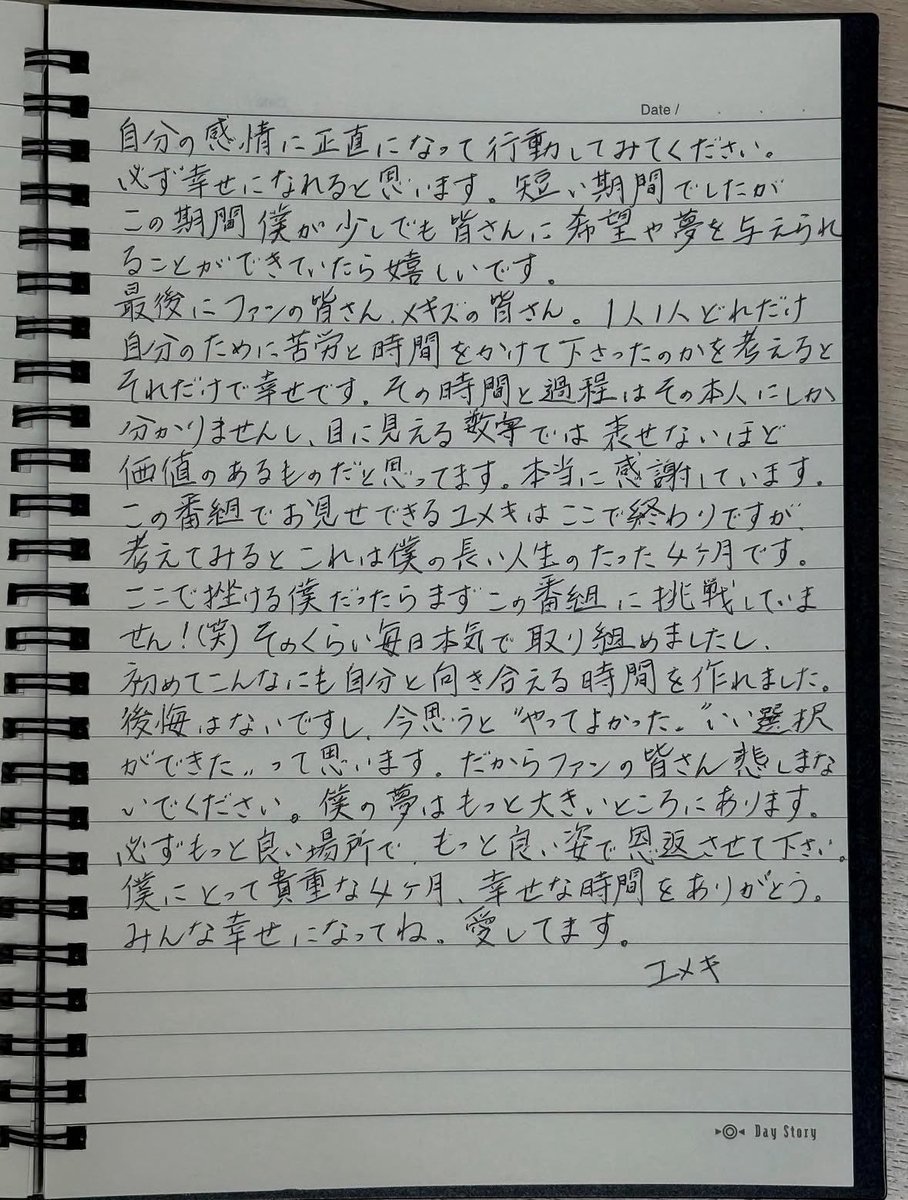 Date / . . .
自分の感情に正直になって行動してみてください。
必ず幸せになれると思います。短い期間でしたが
この期間僕が少しでも皆さんに希望や夢を与えられ
ることができていたら嬉しいです。
最後にファンの皆さん、メキズの皆さん。1人1人どれだけ
自分のために苦労と時間をかけて下さったのかを考えると
それだけで幸せです。その時間と過程はその本人にしか
分かりませんし、目に見える数字では表せないほど
価値のあるものだと思ってます。本当に感謝しています。
この番組でお見せできるユメキはここで終わりですが、
考えてみるとこれは僕の長い人生のたった4ヶ月です。
ここで挫ける僕だったらまずこの番組に挑戦していま
せん!(笑)そのくらい毎日本気で取り組めましたし、
初めてこんなにも自分と向き合える時間を作れました。
後悔はないですし、今思うと"やってよかった。"いい選択
ができた"って思います。だからファンの皆さん悲しまな
いでください。僕の夢はもっと大きいところにあります。
必ずもっと良い場所で、もっと良い姿で恩返させて下さい。
僕にとって貴重な4ヶ月、幸せな時間をありがとう。
みんな幸せになってね。愛してます。
ユメキ
Day Story